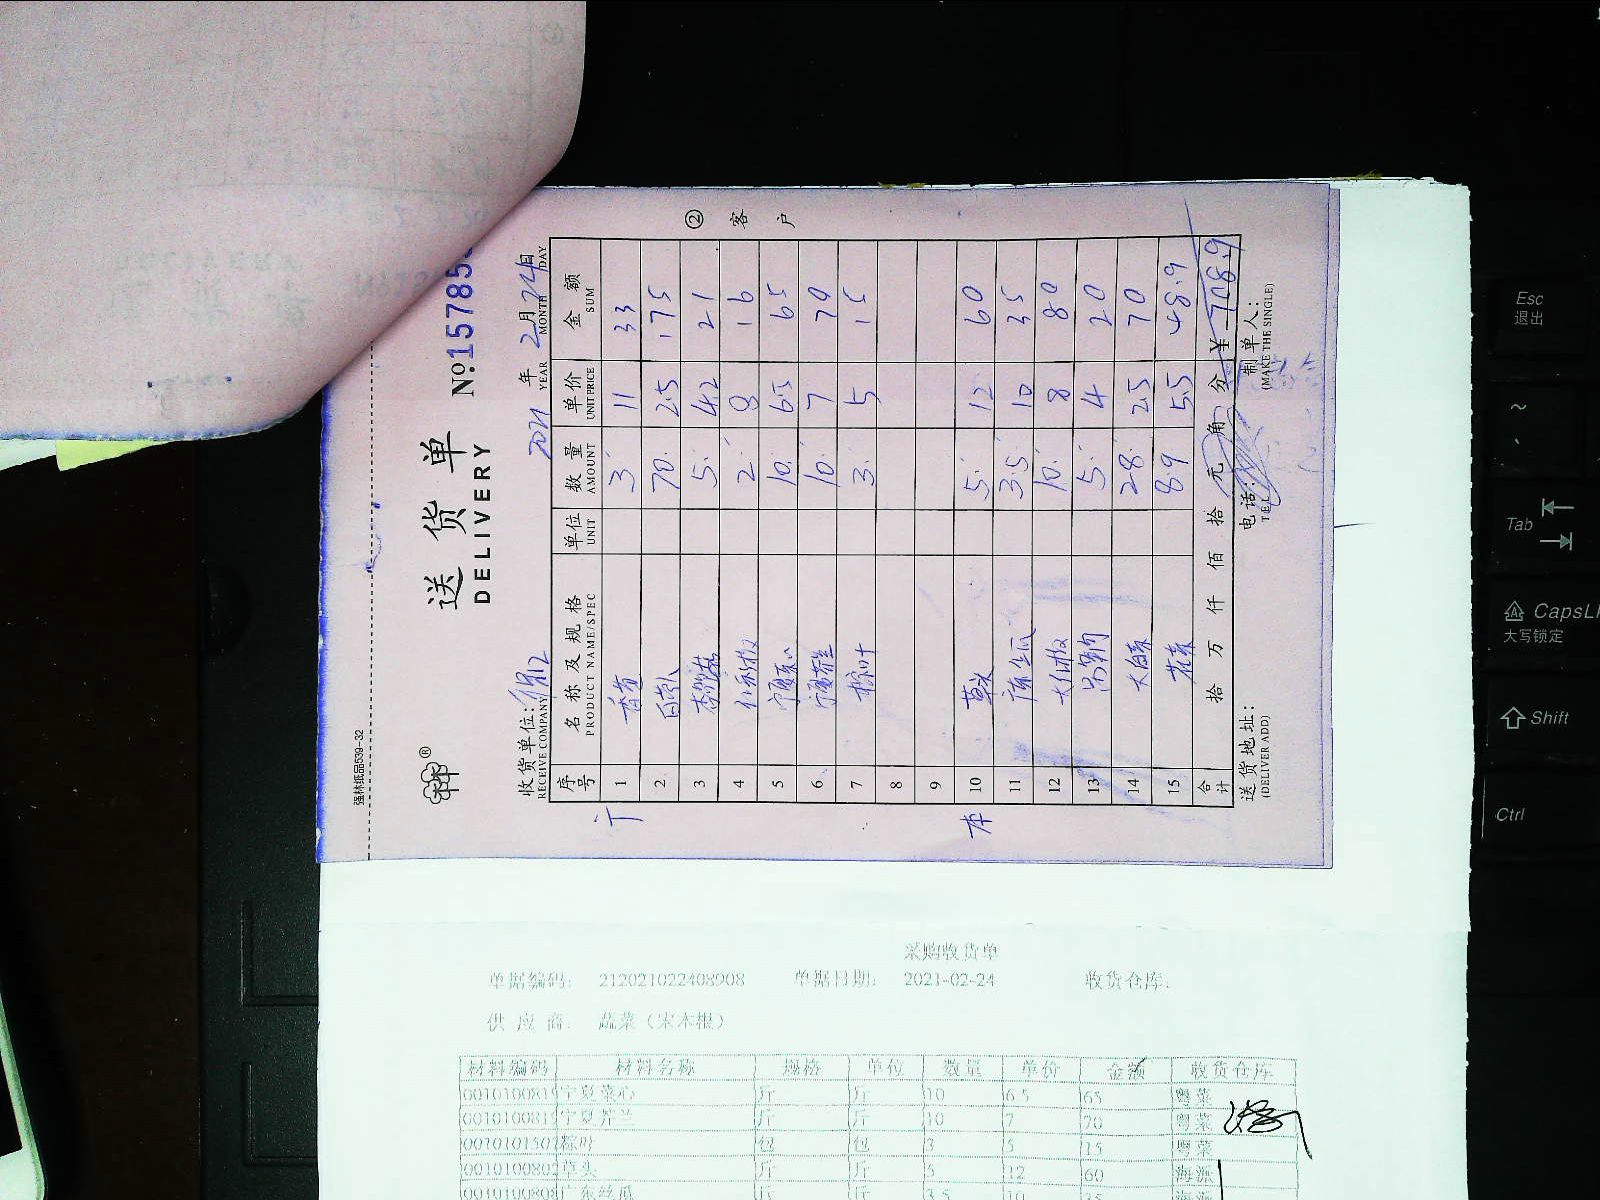 强林纸品539-32
送货单
DELIVERY
No.15785
② 客户
收货单位:
RECEIVE COMPANY
2021 年 2月24日
YEAR MONTH DAY
序号 名称及规格 单位 数量 单价 金额
PRODUCT NAME/SPEC UNIT AMOUNT UNIT PRICE SUM
1 香芹 3 11 33
2 70 25 175
3 5 4.2 21
4 2 8 16
5 宁夏菜心 10 6.5 65
6 宁夏芥兰 10 7 70
7 粽叶 3 5 15
8
9
10 草头 5 12 60
11 广东丝瓜 3.5 10 35
12 10 8 80
13 5 4 20
14 大白菜 28 2.5 70
15 花菜 8.9 5.5 48.9
合计 拾 万 仟 佰 拾 元 角 分 ¥ 708.9
送货地址: 电话: 制单人:
(DELIVER ADD) TEL (MAKE THE SINGLE)
采购收货单
单据编码: 212021022408908 单据日期: 2021-02-24 收货仓库:
供应商: 蔬菜（宋木根）
材料编码 材料名称 规格 单位 数量 单价 金额 收货仓库
001010081 宁夏菜心 斤 斤 10 6.5 65 粤菜
001010081 宁夏芥兰 斤 斤 10 7 70 粤菜
001010150 粽叶 包 包 3 5 15 粤菜
001010080 草头 斤 斤 5 12 60 海派
001010080 广东丝瓜 斤 斤 3.5 10 35 海派
Esc
退出
~
Tab
CapsL
大写锁定
Shift
Ctrl